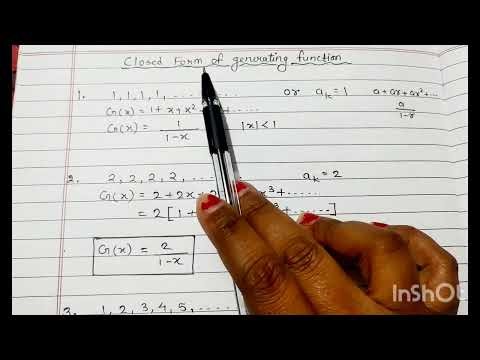 Closed Form of generating function
1. 1, 1, 1, 1, ......... or aₖ = 1 a + ar + ar² + ...
G(x) = 1 + x + x² + ...... a/(1-r)
G(x) = 1/(1-x) |x| < 1
2. 2, 2, 2, 2, ...... aₖ = 2
G(x) = 2 + 2x + x³ + ......
= 2 [ 1 + x³ + ...... ]
G(x) = 2/(1-x)
3. 1, 2, 3, 4, 5, ......
InShOt